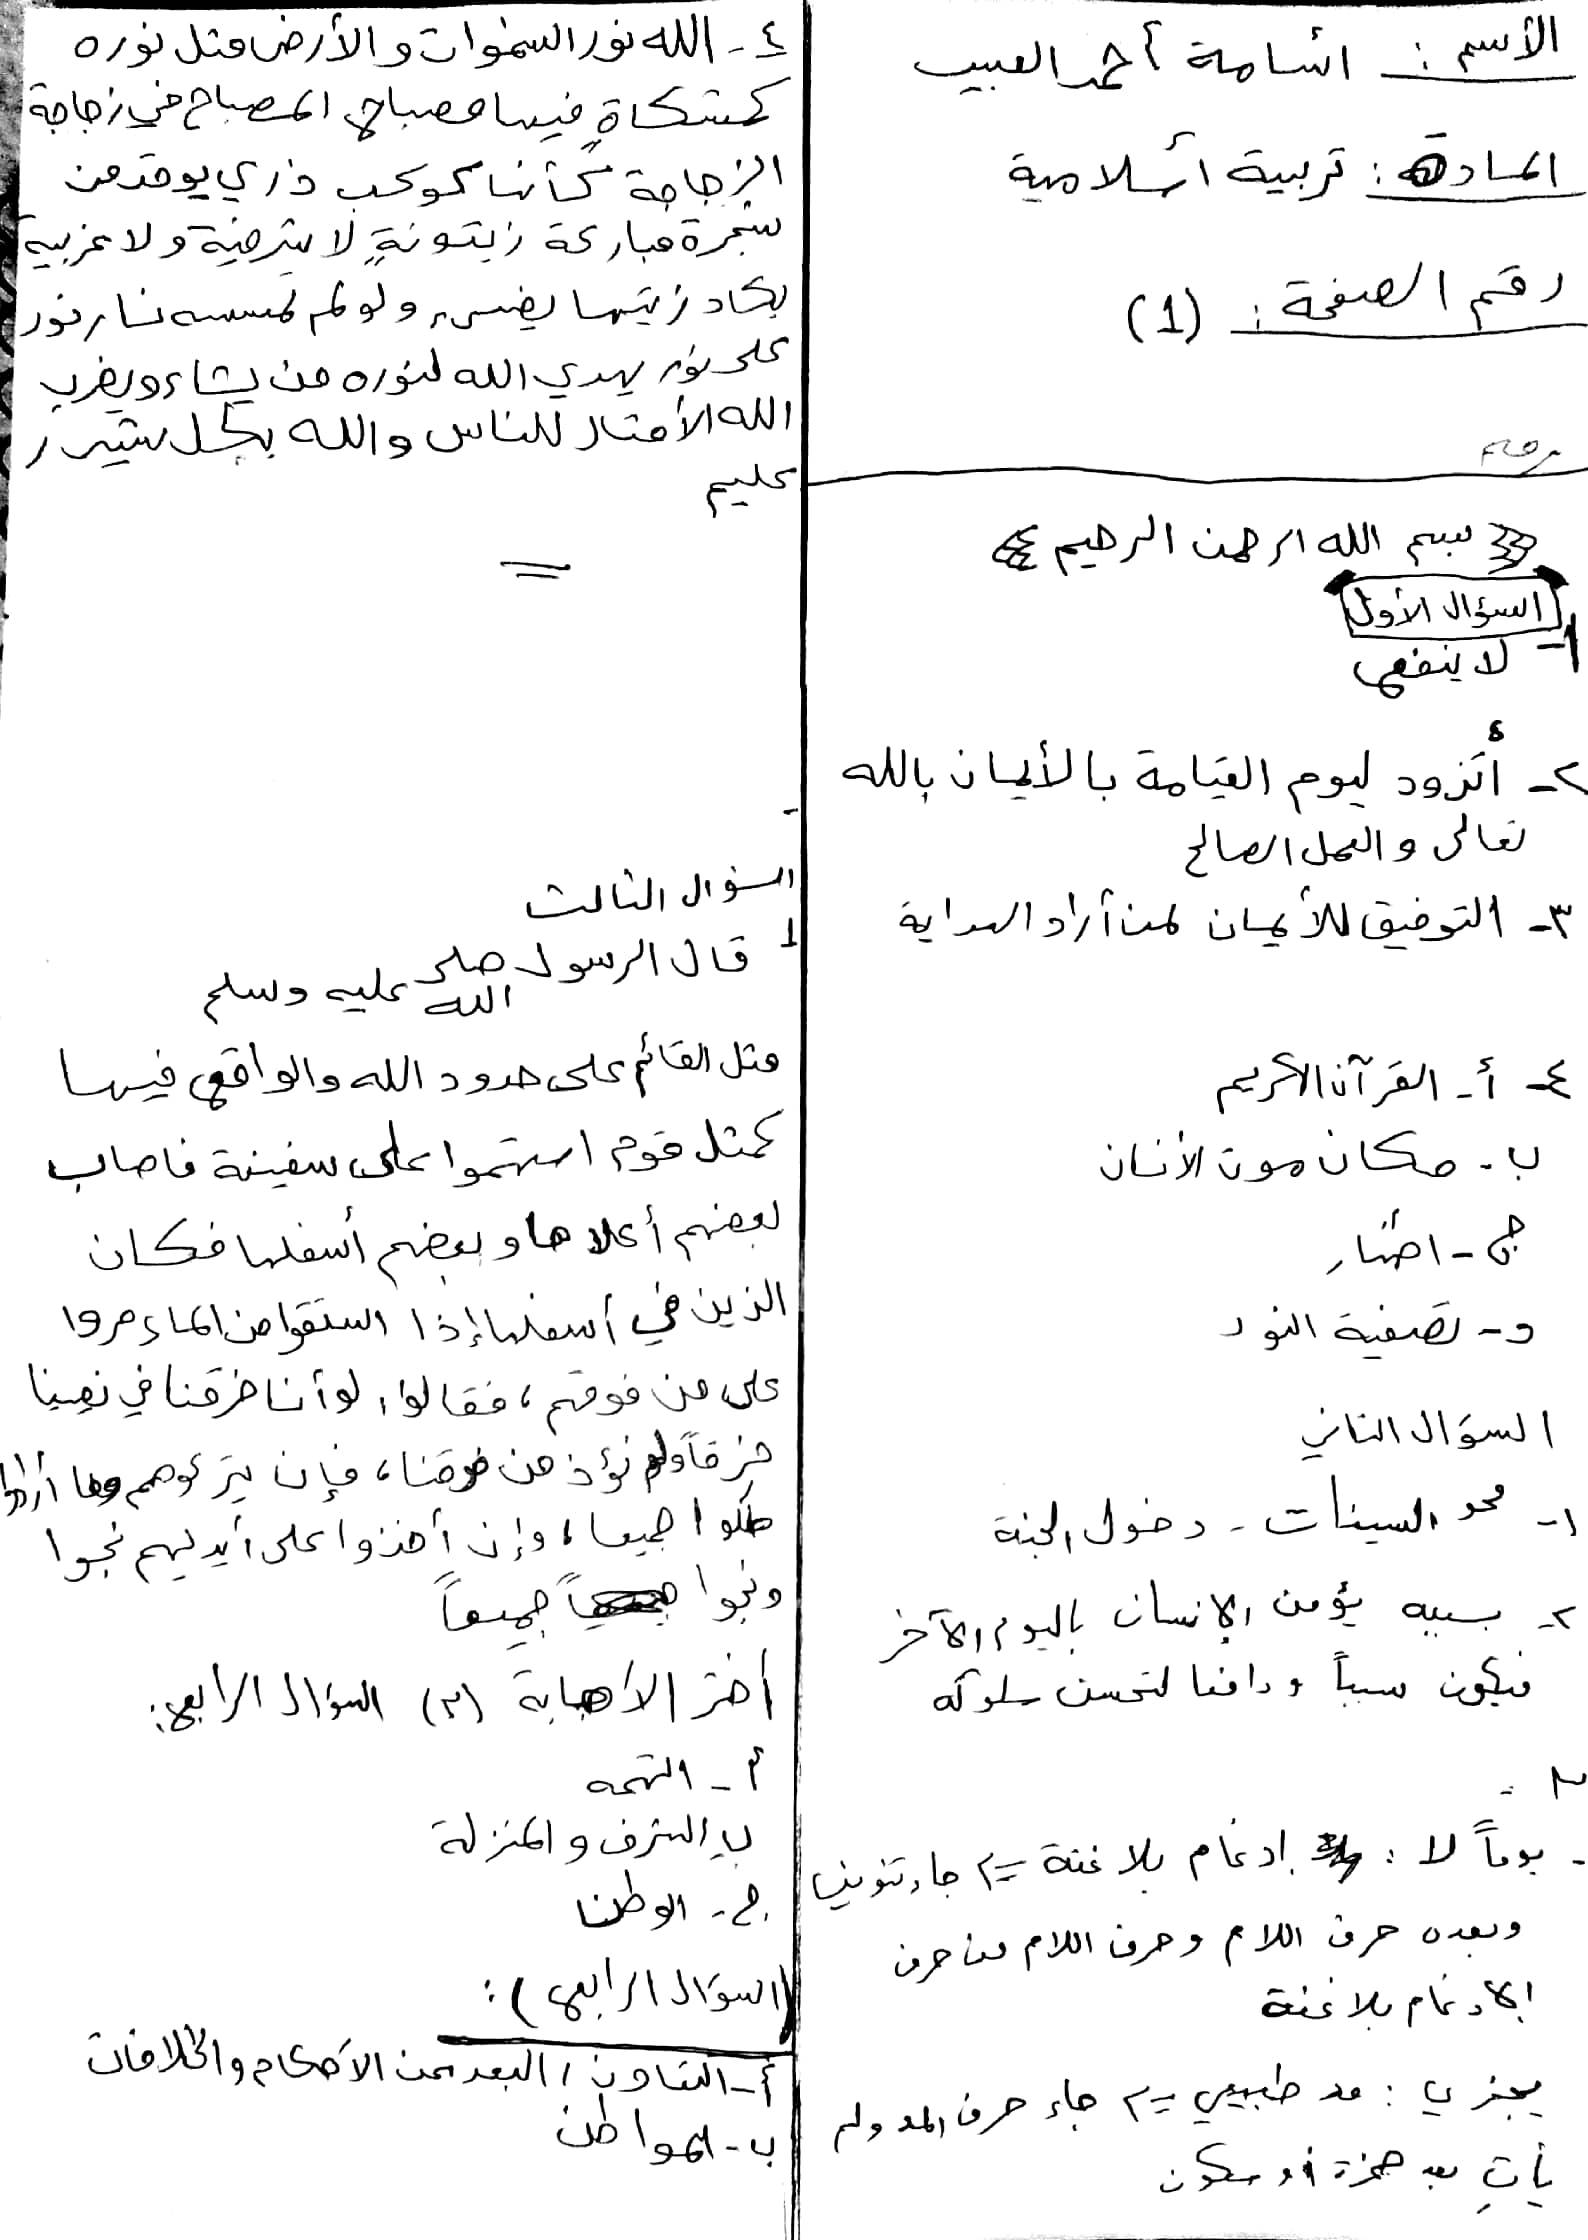 الأسم : اسامة أحمد العبيب
المادة : تربية أسلامية
رقم الصفحة : (1)
رقم
بسم الله الرحمن الرحيم
السؤال الأول
1- لا ينفع
٢- أتزود ليوم القيامة بالأيمان بالله
تعالى والعمل الصالح
٣- التوفيق للأيمان لمن أراد الهداية
٤- أ- القرآن الكريم
ب- مكان موت الأنسان
ج - اخبار
د- تصفية النور
السؤال الثاني
١- محو السيئات - دخول الجنة
٢- بسببه يؤمن الإنسان باليوم الآخر
فيكون سبباً ودافعا لتحسن سلوكه
٣-
- يوماً لا : إدغام بلا غنة => جاء تنوين
وبعده حرف اللام وحرف اللام من حرف
الإدغام بلا غنة
يجزي : مد طبيعي => جاء حرف المد ولم
يأتِ بعد همزة أو سكون
٤- الله نور السموات والأرض مثل نوره
كمشكاةٍ فيها مصباح المصباح في زجاجة
الزجاجة كأنها كوكب دري يوقد من
شجرة مباركة زيتونةٍ لا شرقية ولا غربية
يكاد زيتها يضيء ولو لم تمسسه نار نور
على نور يهدي الله لنوره من يشاء ويضرب
الله الأمثال للناس والله بكل شيء
عليم
السؤال الثالث
1 قال الرسول صلى
الله عليه وسلم
مثل القائم على حدود الله والواقع فيها
كمثل قوم استهموا على سفينة فاصاب
بعضهم أعلاها وبعضهم أسفلها فكان
الذين في أسفلها إذا استقوا من الماء مروا
على من فوقهم، فقالوا، لو أنا خرقنا في نصيبنا
خرقاً ولم نؤذ من فوقنا، فإن يتركوهم وما أرادوا
هلكوا جميعا، وإن أخذوا على أيديهم نجوا
ونجوا جميعاً
أختر الأجابة (٣) السؤال الرابع:
أ - التهمه
ب- الشرف والمنزلة
ج - الوطن
(السؤال الرابع) :
أ- التعاون / البعد عن الأحكام والخلافات
ب- المواطن